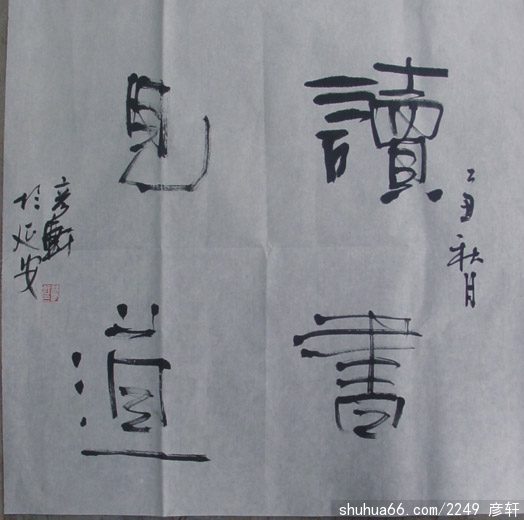 己丑秋月
讀書
見道
彦軒
於延安
shuhua66.com/2249 彦轩